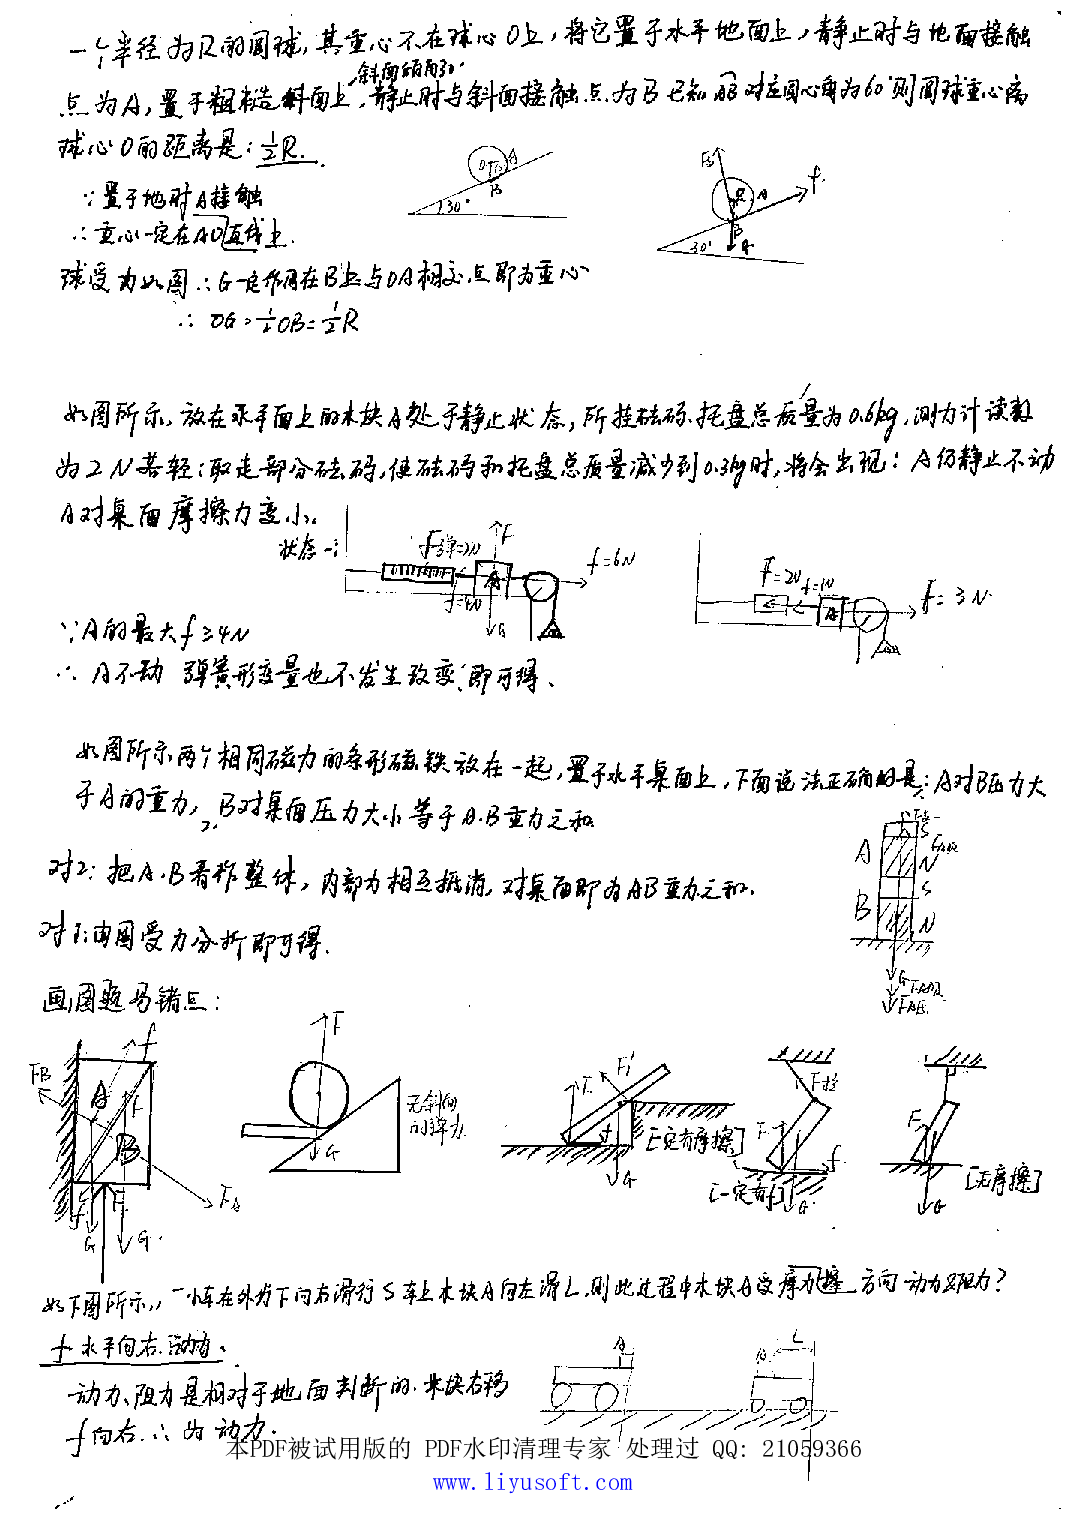 一个半径为R的圆球,其重心不在球心O上,将它置于水平地面上,静止时与地面接触
斜面倾角30°
点为A,置于粗糙斜面上,静止时与斜面接触点为B 已知AB对应圆心角为60°则圆球重心离
球心O的距离是:½R.
∵置于地时A接触
∴重心一定在AO直线上.
球受力如图∴G一定作用在B上与OA相交点即为重心
∴OG=½OB=½R
O A B 30°
A f B G 30°
如图所示,放在水平面上的木块A处于静止状态,所挂砝码、托盘总质量为0.6kg,测力计读数
为2N若轻轻取走部分砝码,使砝码和托盘总质量减少到0.3kg时,将会出现:A仍静止不动
A对桌面摩擦力变小.
状态一:
F弹=2N F f=6N
f=4N A G
F=2N f=1N A F=3N
∵A的最大f≥4N
∴A不动 弹簧形变量也不发生改变,即可得.
如图所示两个相同磁力的条形磁铁放在一起,置于水平桌面上,下面说法正确的是:A对B压力大
于A的重力, 2.B对桌面压力大小等于A.B重力之和
对2:把A.B看作整体,内部力相互抵消,对桌面即为AB重力之和.
对1:由图受力分析即可得.
A S N
B S N
G
画图题易错点:
FB f A B FA G G
F G 无斜向的弹力
F F1 f G [一定有摩擦]
F拉 F f G [一定有f]
F G [无摩擦]
如下图所示,一小车在外力下向右滑行S 车上木块A向左滑L,则此过程中木块A受摩力擦 方向 动力还阻力?
f 水平向右.动力.
动力、阻力是相对于地面判断的.木块右移
f向右.∴为动力.
A A L
本PDF被试用版的 PDF水印清理专家 处理过 QQ: 21059366
www.liyusoft.com